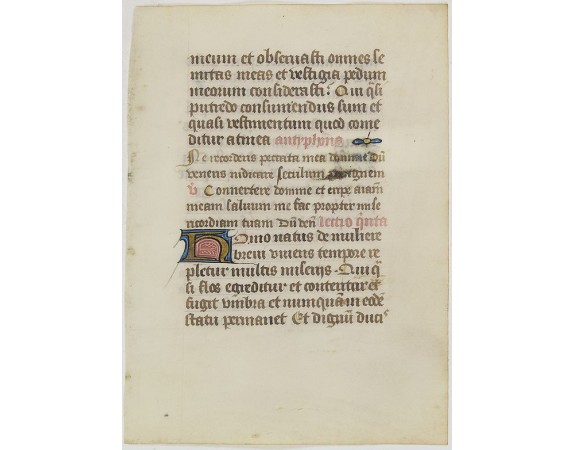 meum et obseruasti omnes se
mitas meas et vestigia pedum
meorum considerasti? Qui qĩsi
putredo consumendus sum et
quasi vestimentum quod come
ditur a tinea antyphona
Ne recorderis peccata mea domine Dũ
veneris iudicare seculum per ignem
V Conuertere domine et eripe aĩam
meam saluum me fac propter mise
ricordiam tuam Dũ veñ Lectio qĩnta
Homo natus de muliere
breui viuens tempore re
pletur multis miserijs Qui qĩ
si flos egreditur et conteritur et
fugit vmbra et numquam in eodẽ
statu permanet Et dignũ duci